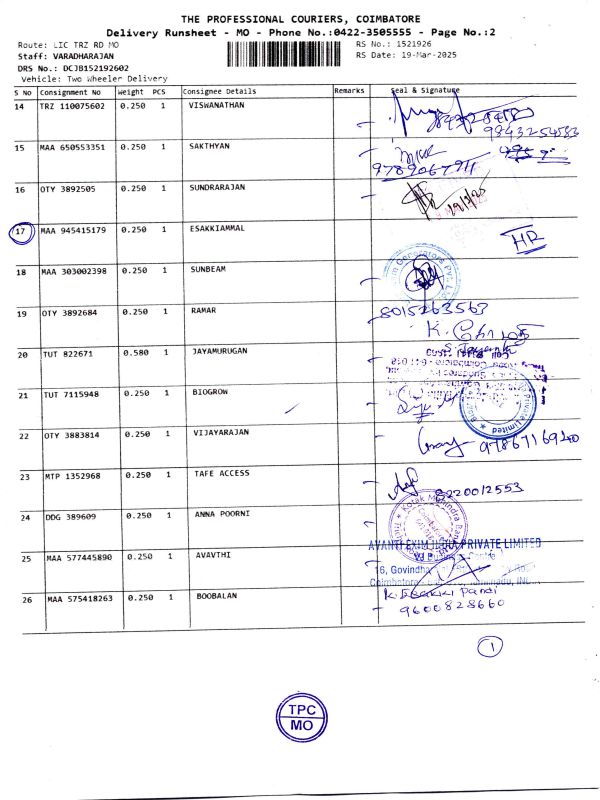 THE PROFESSIONAL COURIERS, COIMBATORE
Delivery Runsheet - MO - Phone No.:0422-3505555 - Page No.:2
Route: LIC TRZ RD MO RS No.: 1521926
Staff: VARADHARAJAN RS Date: 19-Mar-2025
DRS No.: DCJB152192602
Vehicle: Two Wheeler Delivery
S No Consignment No Weight PCS Consignee Details Remarks Seal & Signature
14 TRZ 110075602 0.250 1 VISWANATHAN
9843254583
15 MAA 650553351 0.250 1 SAKTHYAN
9789067911
16 OTY 3892505 0.250 1 SUNDRARAJAN
19/3/25
17 MAA 945415179 0.250 1 ESAKKIAMMAL HR
18 MAA 303002398 0.250 1 SUNBEAM
19 OTY 3892684 0.250 1 RAMAR 8015263563
20 TUT 822671 0.580 1 JAYAMURUGAN
21 TUT 7115948 0.250 1 BIOGROW
Private Limited
22 OTY 3883814 0.250 1 VIJAYARAJAN 9786716940
23 MTP 1352968 0.250 1 TAFE ACCESS 8220012553
24 DDG 389609 0.250 1 ANNA POORNI
Kotak Mahindra Bank
AVANTI EXIM INDIA PRIVATE LIMITED
25 MAA 577445890 0.250 1 AVAVTHI
16, Govindha
Coimbatore
26 MAA 575418263 0.250 1 BOOBALAN K. Esakki Pandi
9600828660
1
TPC
MO